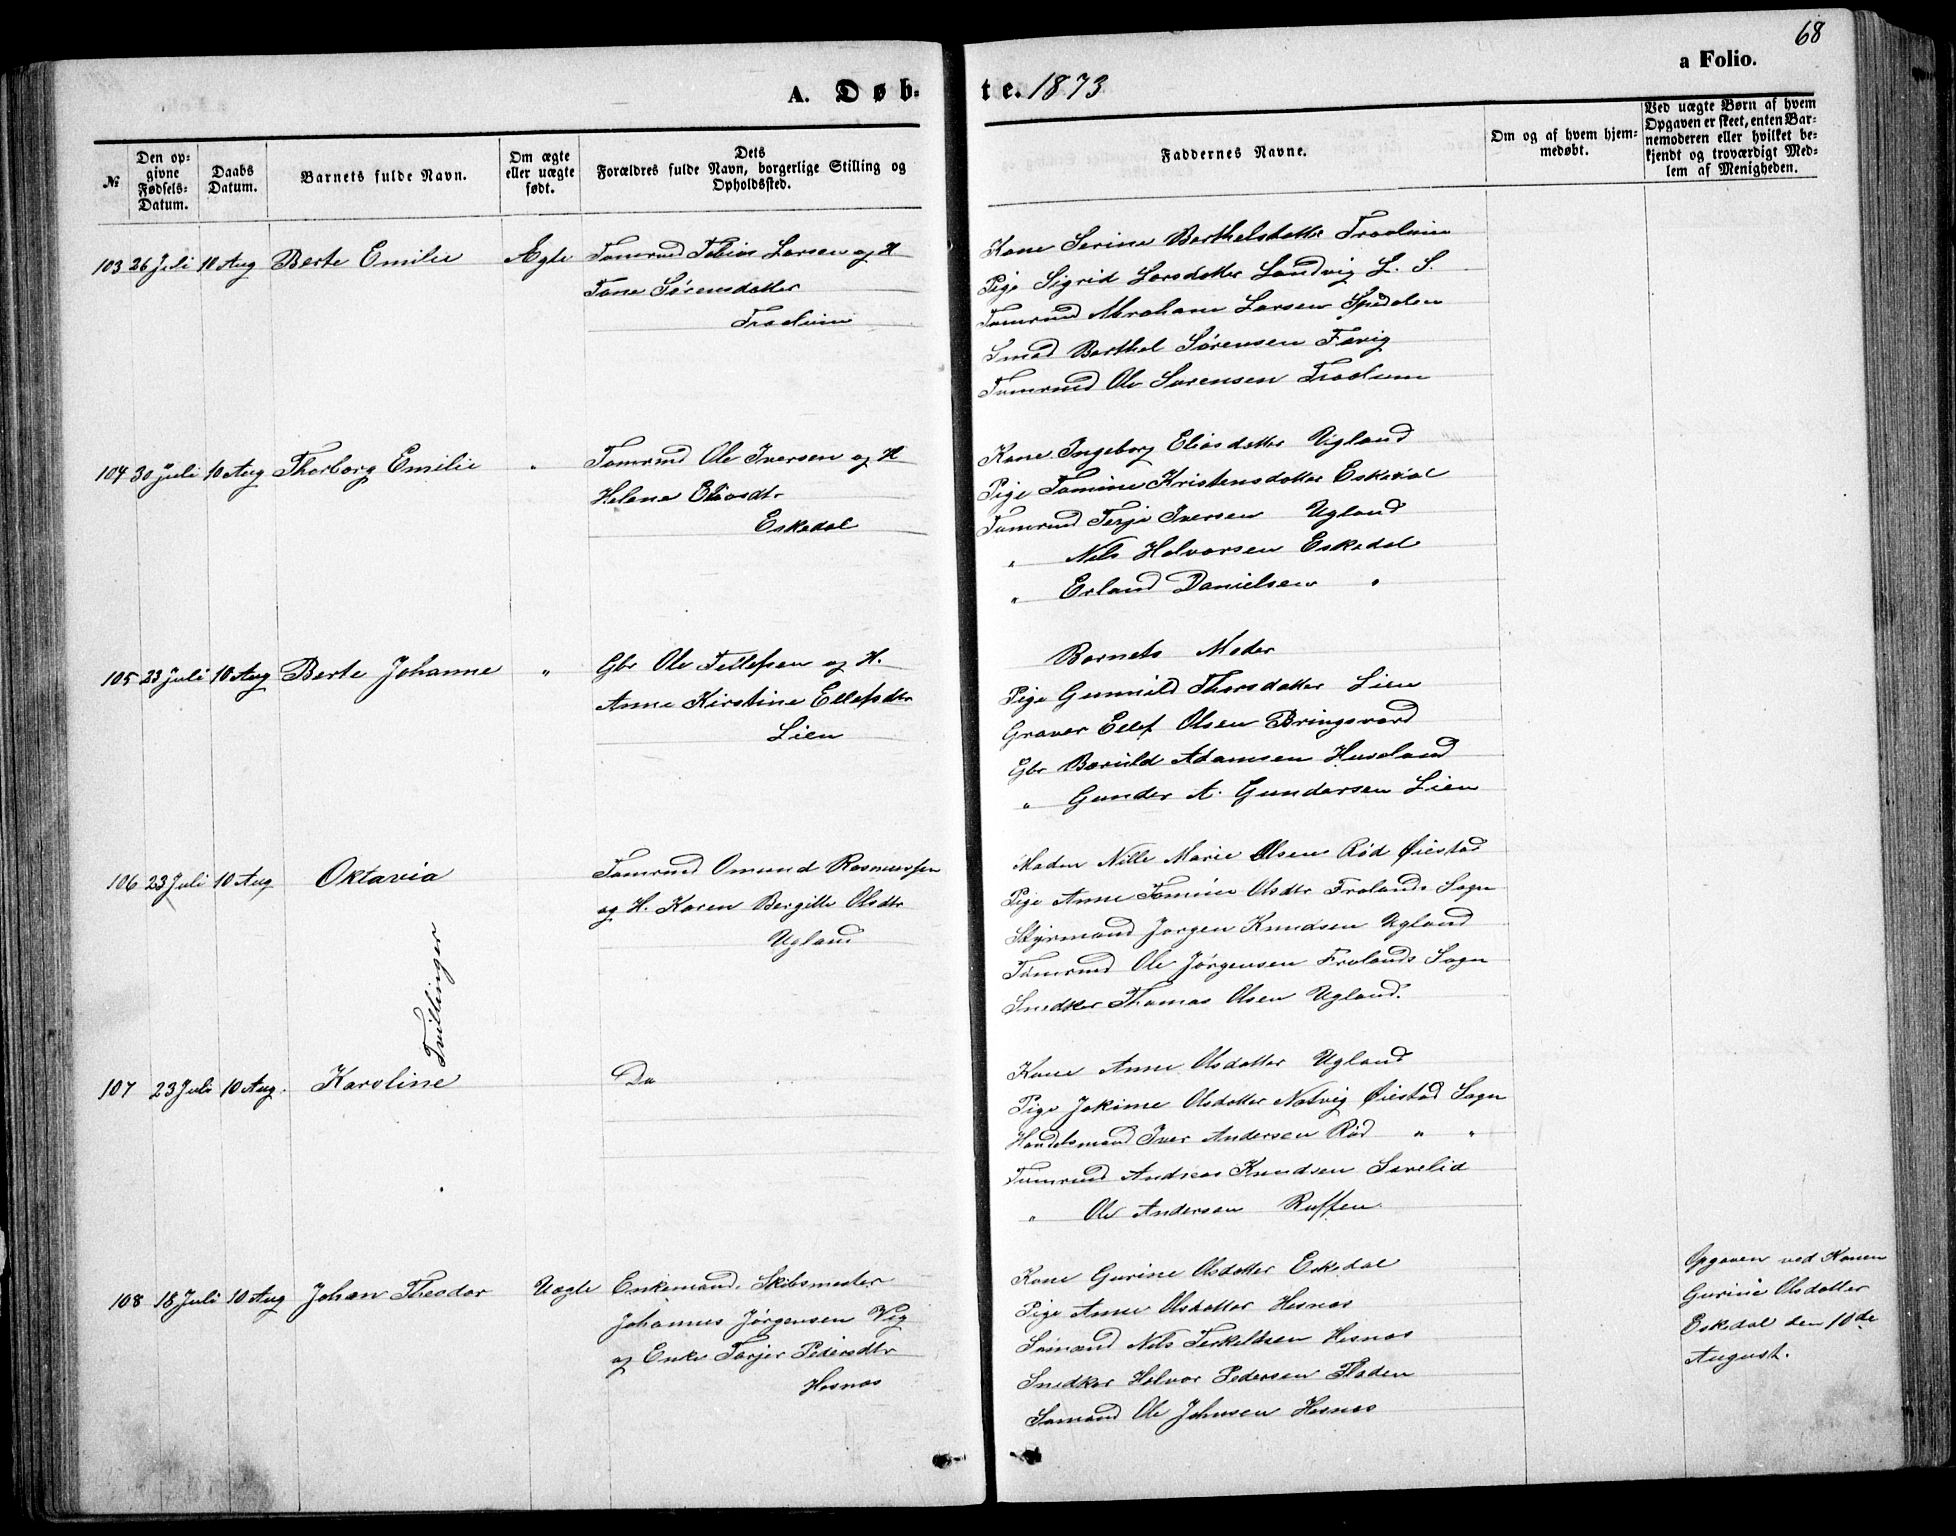 68
a Folio.
A. Døb-
te. 1873
№
Den op-
givne
Fødsels-
Datum.
Daabs
Datum.
Barnets fulde Navn.
Om ægte
eller uægte
født.
Dets
Forældres fulde Navn, borgerlige Stilling og
Opholdssted.
Faddernes Navne.
Om og af hvem hjem-
medøbt.
Ved uægte Børn af hvem
Opgaven er skeet, enten Bar-
nemoderen eller hvilket be-
kjendt og troværdigt Med-
lem af Menigheden.
103 26 Juli 10 Aug Berte Emilie Ægte Tømrmd Tobias Larsen og H
Tone Sørensdatter
Kone Serine Barthelsdatter
Pige Sigrid Larsdatter Landvig L. S.
Tømrmd Abraham Larsen
Smed Barthel Sørensen Fævig
Tømrmd Ole Sørensen
104 30 Juli 10 Aug Thorborg Emilie " Tømrmd Ole Iversen og H
Helene Eliasdtr
Eskedal
Kone Ingeborg Eliasdatter Ugland
Pige Tomine Kristensdatter Eskedal
Tømrmd Terje Iversen Ugland
" Nils Halvorsen Eskedal
" Erland Danielsen "
105 23 Juli 10 Aug Berte Johanne " Gbr Ole Tellefsen og H.
Anne Kirstine Ellefsdtr
Lien
Barnets Moder
Pige Gunnild Thorsdatter Lien
Graver Ellef Olsen Bringsværd
Gbr Baruld Adamsen Huseland
" Gunder A. Gundersen Lien
106 23 Juli 10 Aug Oktavia Tømrmd Omund Rasmussen
og H. Karen Bergitte Olsdtr
Ugland
Madm Nille Marie Olsen Rød Øiestad
Pige Anne Tomine Olsdtr Frolands Sogn
Styrmand Jørgen Knudsen Ugland
Tømrmd Ole Jørgensen Frolands Sogn
Snedker Thomas Olsen Ugland.
Tvillinger
107 23 Juli 10 Aug. Karoline Do
Kone Anne Olsdatter Ugland
Pige Jokime Olsdatter Natvig Øiestad Sogn
Handelsmand Iver Andersen Rød " "
Tømrmd Andreas Knudsen
" Ole Andersen
108 18 Juli 10 Aug Johan Theodor Uægte Enkemand, Skibsmester
Johannes Jørgensen Vig
og Enke Tarjer Pedersdtr
Hesnæs
Kone Gurine Olsdatter Eskedal
Pige Anne Olsdatter Hesnæs
Sømand Nils Terkeldsen Hesnæs
Snedker Halvor Pedersen Fladen
Sømand Ole Johnsen Hesnæs
Opgaven ved Konen
Gurine Olsdatter
Eskedal den 10de
August.